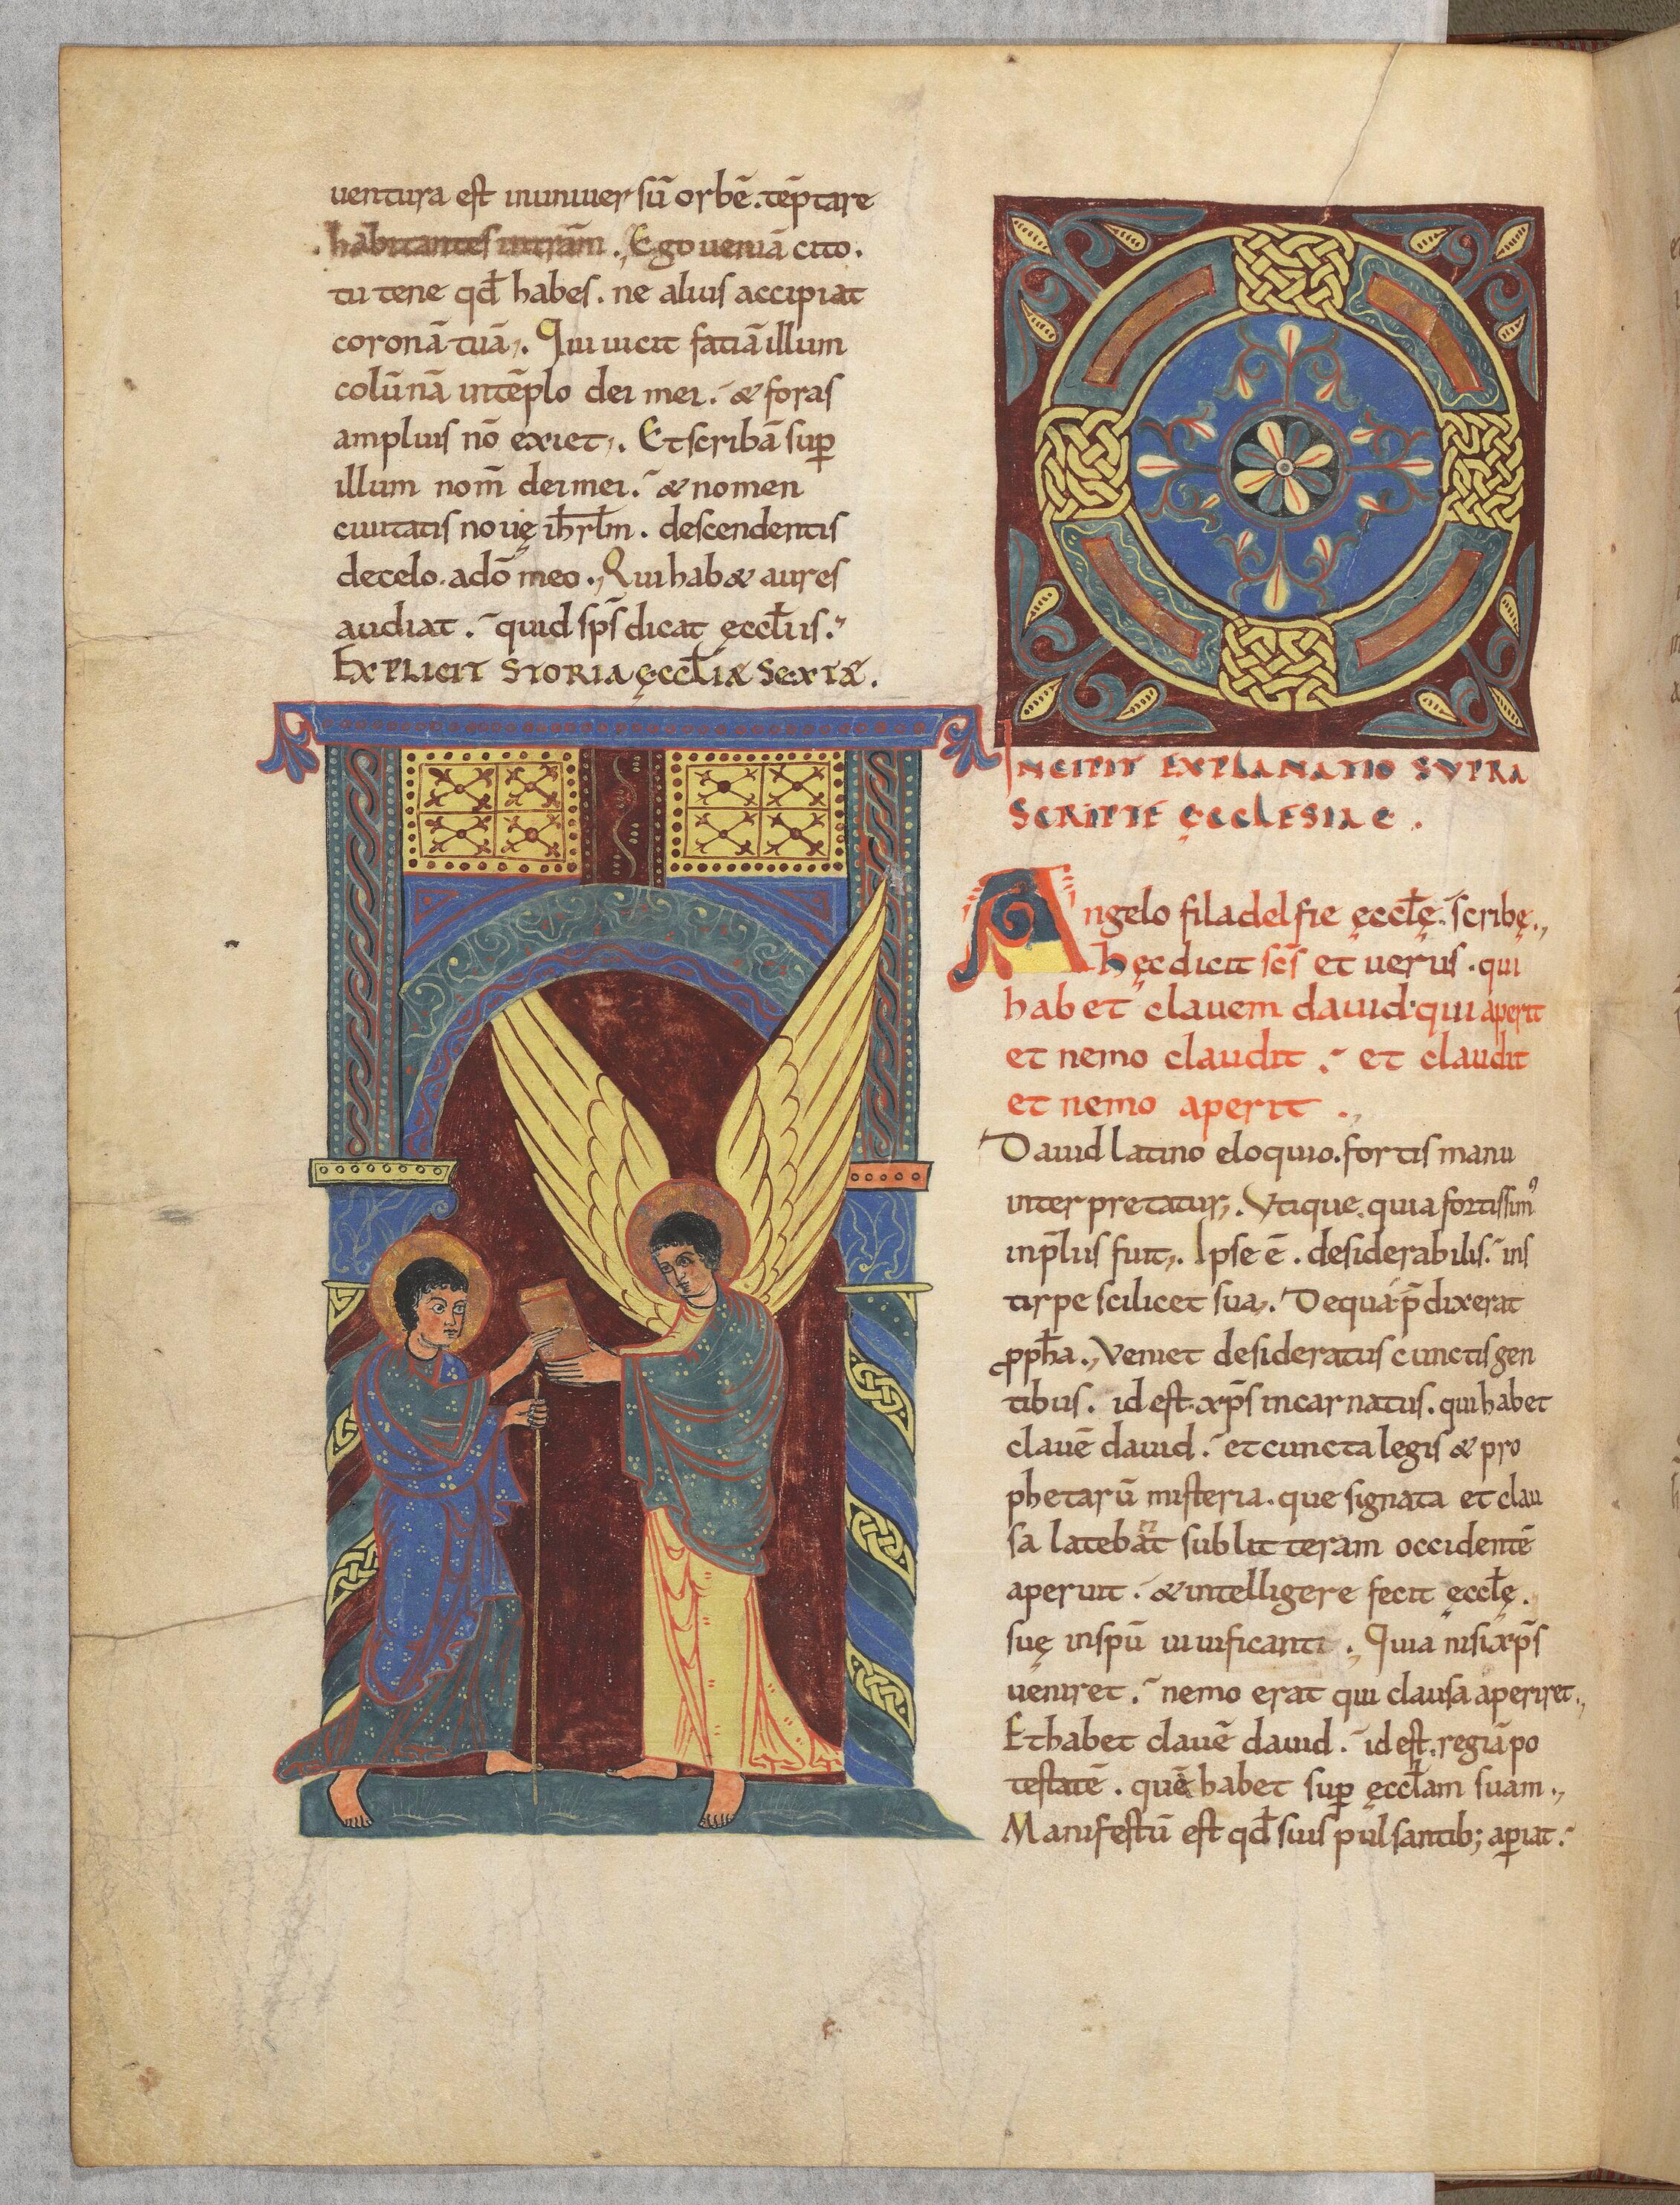 uentura est inuniuersū orbē. tēptare
habitantes intrām. Ego ueniā cito.
tu tene qđ habes. ne alius accipiat
coronā tuā. Qui uicit fatiā illum
colūnā intēplo dei mei. & foras
amplius nō exiet. Et scribā sup̄
illum nom̄ dei mei. & nomen
ciuitatis nouę ihrłm. descendentis
decelo. adō meo. Qui hab& aures
audiat. quid sp̄s dicat ęccłiis.
EXPLICIT STORIA ĘCCŁIÆ SEXTÆ.
INCIPIT EXPLANATIO SVPRA
SCRIPTE ĘCCLESIAE.
Angelo filadelfie ęccłę. scribę.
hęc dicit sc̄s et uerus. qui
habet clauem dauid. qui aperit
et nemo claudit. et claudit
et nemo aperit.
Dauid latino eloquio. fortis manu
interpretatur. Vtique. quia fortissimꝰ
inp̄liis fuit. Ipse ē. desiderabilis. ins
tirpe scilicet sua. Dequa p̄dixerat
ppħa. Veniet desideratus cunctis gen
tibus. id est. xp̄s incarnatus. qui habet
clauē dauid. et cuncta legis & pro
phetarū misteria. que signata et clau
sa latebant sub litteram occidentē
aperuit. & intelligere fecit ęccłę.
suę inspū uiuificanti. Quia nisi xp̄s
ueniret. nemo erat qui clausa aperiret.
Et habet clauē dauid. id est. regiā po
testatē. quē habet sup̄ ęccłam suam.
Manifestū est qđ suis pulsantib; ap̄iat.